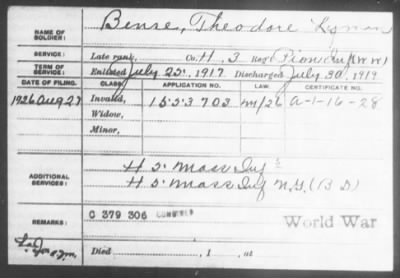 NAME OF SOLDIER: Bense, Theodore Lyman
SERVICE: Late rank, Co. H, 3 Reg't Pion. Inf (W W)
TERM OF SERVICE: Enlisted July 25, 1917. Discharged July 30, 1919
DATE OF FILING. CLASS. APPLICATION NO. LAW. CERTIFICATE NO.
1926 Aug 27 Invalid, 1553703 A-1-16-28
Widow,
Minor,
ADDITIONAL SERVICES: H 5" Mass Inf
H 5" Mass Inf N.G.
REMARKS: C 379 306 World War
Died , 1 , at